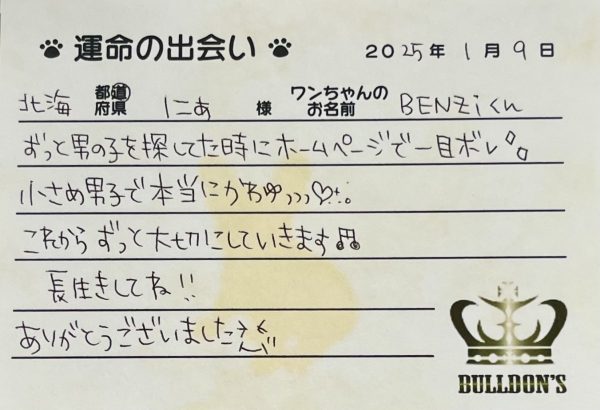 運命の出会い 2025年1月9日
北海 都道府県 にあ 様 ワンちゃんのお名前 BENZiくん
ずっと男の子を探してた時にホームページで一目ボレ
小さめ男子で本当にかわゆっっっ♡
これからずっと大切にしていきます♫
長生きしてね!!
ありがとうございました
BULLDON'S